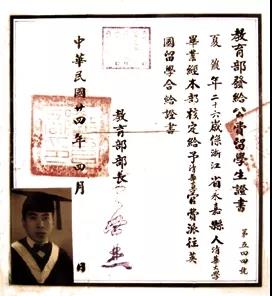 教育部發給公費留學生證書
第五四四號
夏鼐年二十六歲係浙江省永嘉縣人清華大學
畢業經本部核定給予清華公費派往英
國留學合給證書
教育部部長
中華民國廿四年四月 日